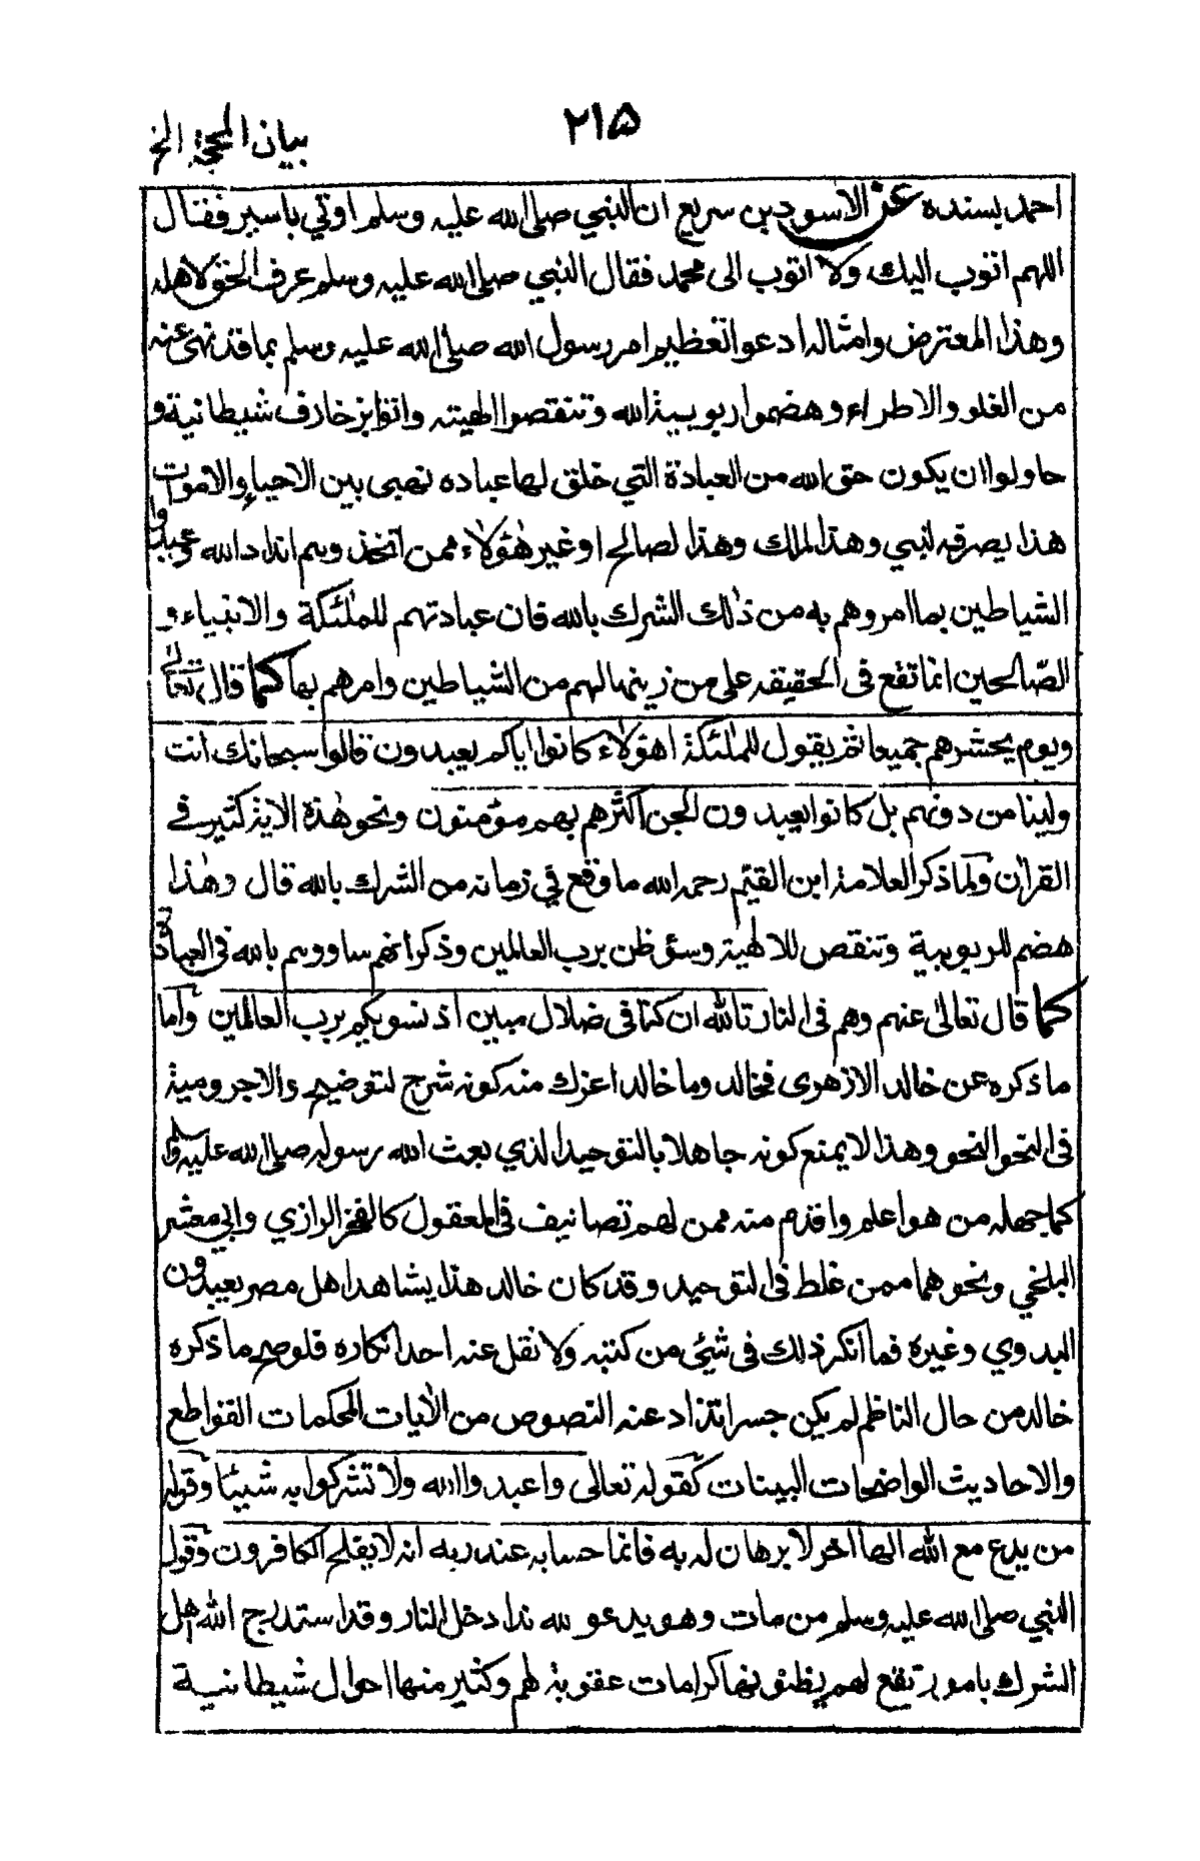 بيان المحجة الخ
۲۱۵
احمد بسنده عن الاسود بن سريع ان النبي صلى الله عليه وسلم اوتي باسير فقال
اللهم اتوب اليك ولا اتوب الى محمد فقال النبي صلى الله عليه وسلم عرف الحق لاهله
وهذا المعترض وامثاله ادعوا تعظيم امر رسول الله صلى الله عليه وسلم بما قد نهى عنه
من الغلو والاطراء وهضموا ربوبية الله وتنقصوا الهيته واتوا بزخارف شيطانية و
حاولوا ان يكون حق الله من العبادة التي خلق لها عباده نهبى بين الاحياء والاموات
هذا يصرفه لنبي وهذا لملك وهذا لصالح او غير هؤلاء ممن اتخذوهم اندادا لله وعبدوا
الشياطين بما امروهم به من ذلك الشرك بالله فان عبادتهم للملئكة والانبياء و
الصالحين انما تقع فى الحقيقة على من زينها لهم من الشياطين وامرهم بها كما قال تعالى
ويوم يحشرهم جميعا ثم يقول للملئكة اهؤلاء اياكم كانوا يعبدون قالوا سبحانك انت
ولينا من دونهم بل كانوا يعبدون الجن اكثرهم بهم مؤمنون ونحو هذه الاية كثير في
القران ولما ذكر العلامة ابن القيم رحمه الله ما وقع في زمانه من الشرك بالله قال وهذا
هضم للربوبية وتنقص للالهية وسوء ظن برب العالمين وذكر انهم ساووهم بالله فى العبادة
كما قال تعالى عنهم وهم فى النار تالله ان كنا فى ضلال مبين اذ نسويكم برب العالمين واما
ما ذكره عن خالد الازهرى فخالد وما خالد اعزك منه كونه شرح التوضيح والاجرومية
فى النحو النحو وهذا لا يمنع كونه جاهلا بالتوحيد الذي بعث الله رسوله صلى الله عليه وسلم
كما جهله من هو اعلم واقدم منه ممن لهم تصانيف فى المعقول كالفخر الرازي وابي معشر
البلخي ونحوهما ممن غلط فى التوحيد وقد كان خالد هذا يشاهد اهل مصر يعبدون
البدوي وغيره فما انكر ذلك فى شيئ من كتبه ولا نقل عنه احد انكاره فلو صح ما ذكره
خالد من حال الناظم لم يكن جسرا تذاد عنه النصوص من الآيات المحكمات القواطع
والاحاديث الواضحات البينات كقوله تعالى واعبدوا الله ولا تشركوا به شيئا وقوله
من يدع مع الله الها اخر لا برهان له به فانما حسابه عند ربه انه لا يفلح الكافرون وقول
النبي صلى الله عليه وسلم من مات وهو يدعو لله ندا دخل النار وقد استدرج الله اهل
الشرك بامور تقع لهم يظنونها كرامات عقوبة لهم وكثير منها احوال شيطانية